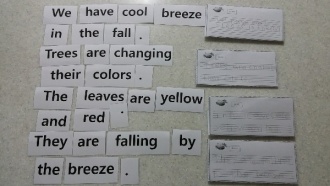 We have cool breeze
in the fall .
Trees are changing
their colors .
The leaves are yellow
and red .
They are falling by
the breeze .